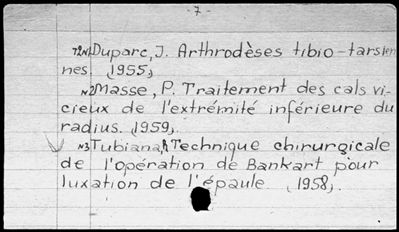 - 7 -
T2N1 Duparc, J. Arthrodèses tibio-tarsien
nes. (1955)
N2 Masse, P. Traitement des cals vi-
cieux de l'extrémité inférieure du
radius. (1959).
N3 Tubiana, R. Technique chirurgicale
de l'opération de Bankart pour
luxation de l'épaule. (1958).